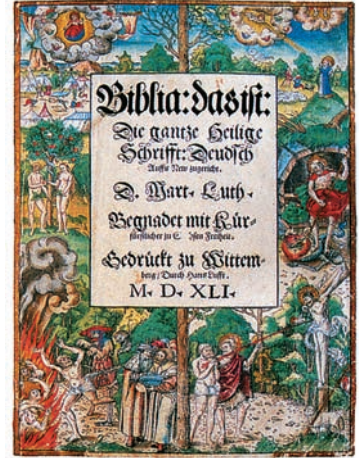 Biblia: das ist:
Die gantze Heilige
Schrifft: Deudsch
Auffs New zugericht.
D. Mart. Luth.
Begnadet mit Kür-
fürstlicher zu Freiheit.
Gedrückt zu Wittem-
berg, Durch Hans Lufft.
M. D. XLI.